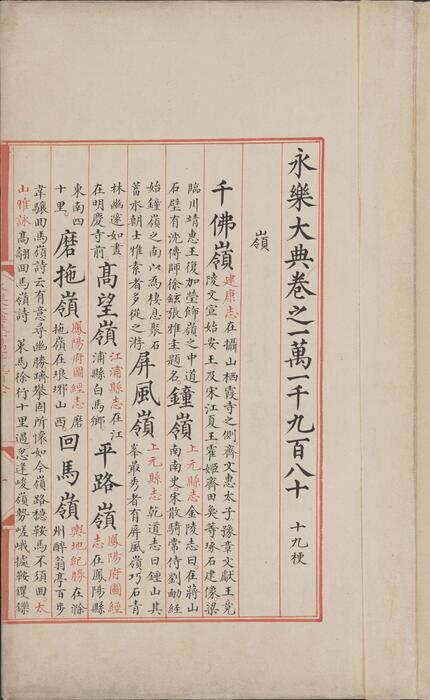 永樂大典卷之一萬一千九百八十 十九梗
嶺
千佛嶺
建康志在攝山栖霞寺之側齊文惠太子豫章文獻王竟
陵文宣始安王及宋江夏王霍姬齊田奐等琢石建像梁
臨川靖惠王復加瑩飾嶺之中道
石壁有沈傳師徐鉉張稚圭題名。
鐘嶺
上元縣志金陵志曰在蔣山
南南史宋散騎常侍劉勔經
始鐘嶺之南以為棲息聚石
蓄水朝士雅素者多從之游
屏風嶺
上元縣志乾道志曰鍾山其
峯最秀者有屏風嶺巧石青
林幽邃如畫
在明慶寺前。
髙望嶺
江浦縣志在江
浦縣白馬鄉。
平路嶺
鳳陽府圖經
志在鳳陽縣
東南四
十里。
磨拖嶺
鳳陽府圖經志磨
拖嶺在琅琊山西。
回馬嶺
輿地紀勝在滁
州醉翁亭百步
韋驤回馬嶺詩云有意尋幽勝躋攀固所懷如今嶺路穩鞍馬不須回。太
山雅詠高翿回馬嶺詩 策馬徐行十里過忽逢峻嶺勢嵯峨據鞍鑺鑠